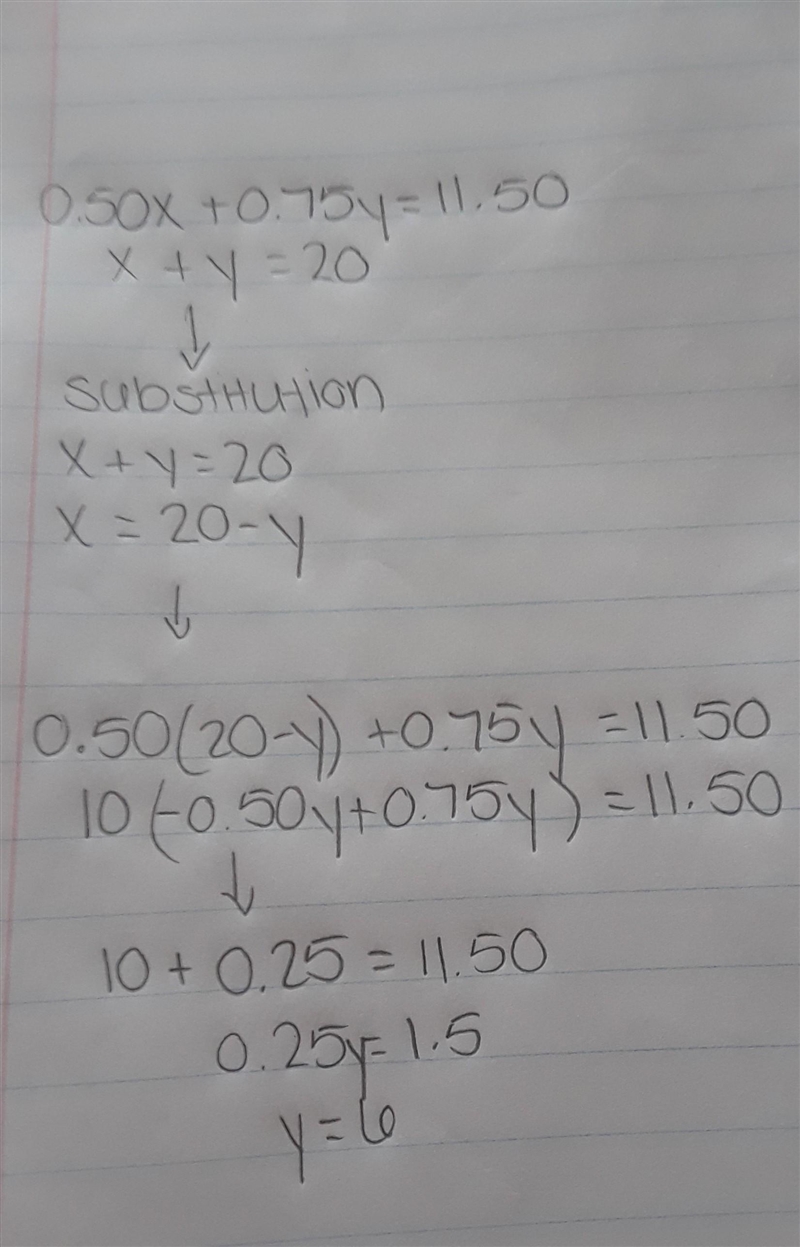 0.50x + 0.75y = 11.50
x + y = 20
↓
substitution
x + y = 20
x = 20 - y
↓
0.50(20-y) + 0.75y = 11.50
10(-0.50y + 0.75y) = 11.50
↓
10 + 0.25 = 11.50
0.25y = 1.5
y = 6